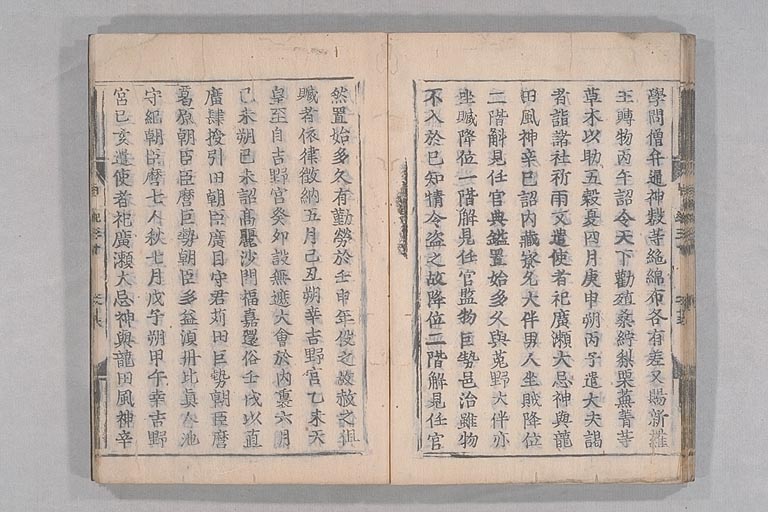 學問僧弁通神叡等絁綿布各有差又賜新羅
王賻物丙午詔令天下勸殖桑紵梨栗蕪菁等
草木以助五穀夏四月庚申朔丙子遣大夫謁
者詣諸社祈雨又遣使者祀廣瀬大忌神與龍
田風神辛巳詔內藏寮允大伴男人坐贓降位
二階解見任官典鑰置始多久與菟野大伴亦
坐贓降位一階解見任官監物巨勢邑治雖物
不入於己知情令盜之故降位二階解見任官
然置始多久有勤勞於壬申年役之故赦之但
贓者依律徵納五月己丑朔幸吉野宮乙未天
皇至自吉野宮癸卯設無遮大會於內裏六月
己未朔己未詔高麗沙門福嘉還俗壬戌以直
廣肆授引田朝臣廣目守君苅田巨勢朝臣麿
葛原朝臣臣麿巨勢朝臣多益須丹比真人池
守紀朝臣麿七人秋七月戊子朔甲午幸吉野
宮己亥遣使者祀廣瀬大忌神與龍田風神辛